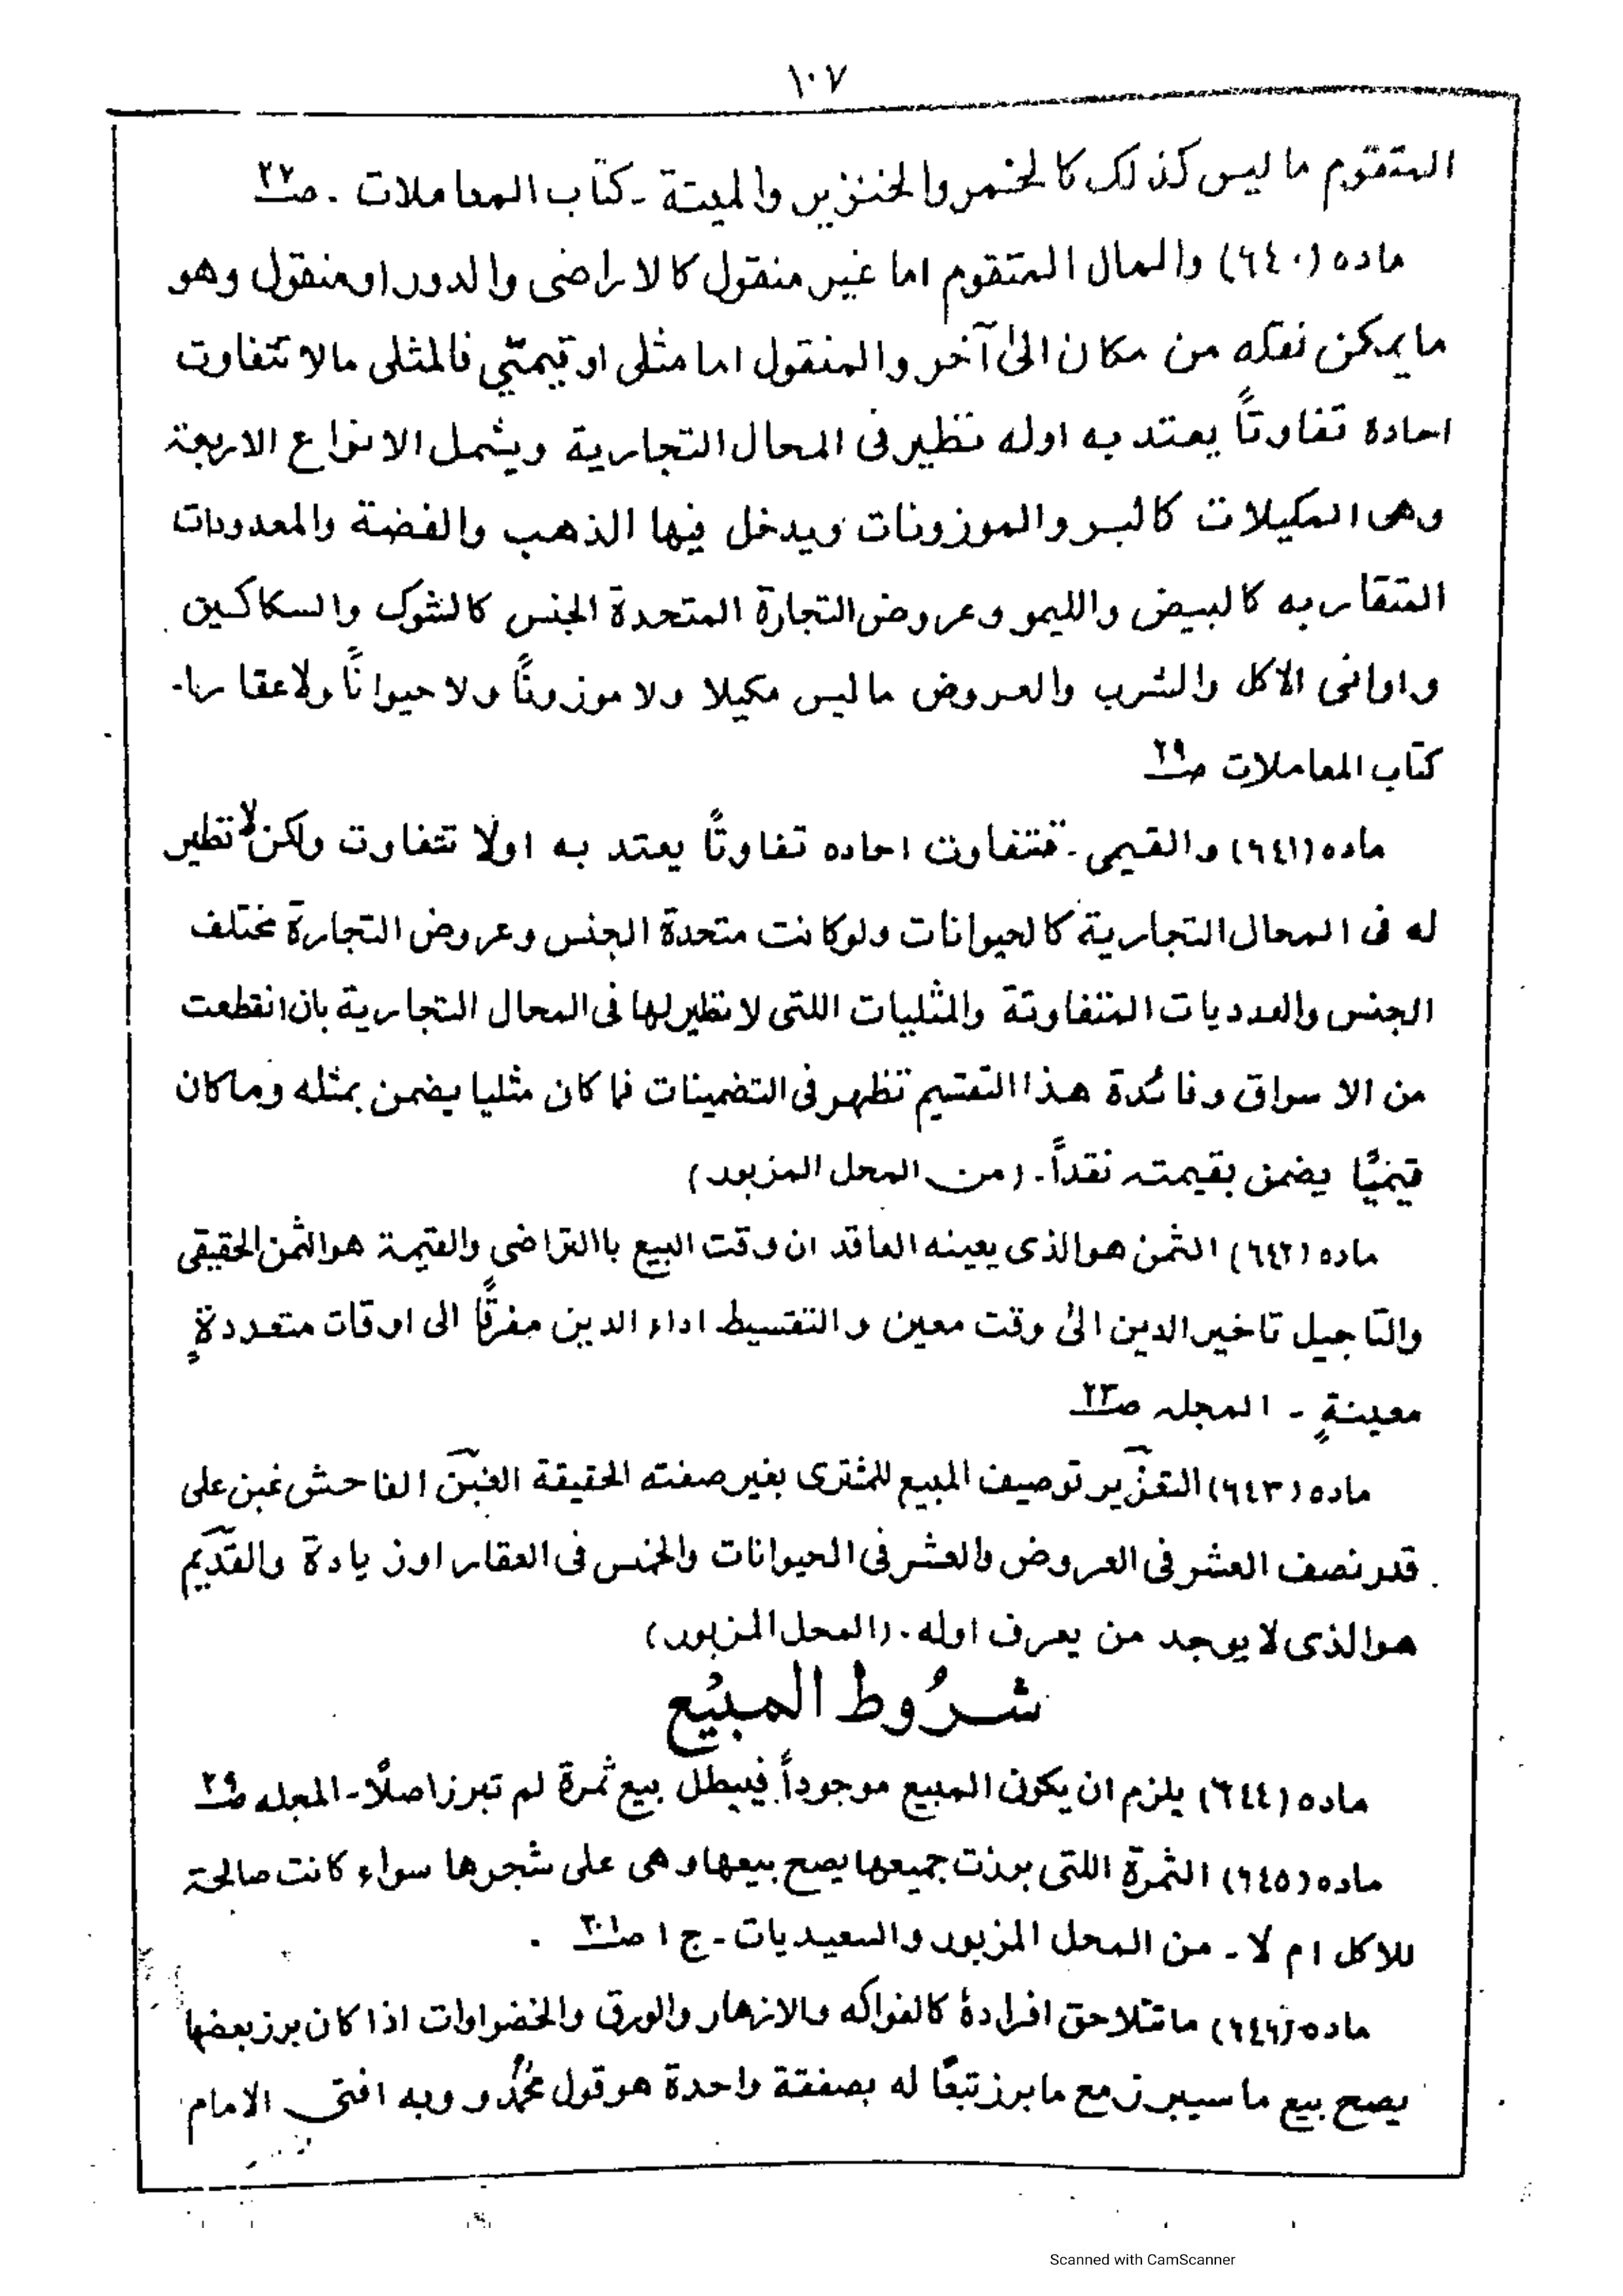 ١٠٧
المتقوم ما ليس كذلك كالخمر والخنزير والميتة ـ كتاب المعاملات ـ صـ٢٧
ماده (٦٤٠) والمال المتقوم اما غير منقول كالاراضى والدور او منقول وهو
ما يمكن نقله من مكان الىٰ آخر والمنقول اما مثلى او قيمتي فالمثلى مالا تتفاوت
احادة تفاوتاً يعتد به اوله نظير فى المحال التجارية ويشمل الانواع الاربعة
وهى المكيلات كالبر والموزونات ويدخل فيها الذهب والفضة والمعدودات
المتقاربه كالبيض والليمو وعروض التجارة المتحدة الجنس كالشوك والسكاكين
واوانى الاكل والشرب والعروض ماليس مكيلا ولا موزوناً ولا حيواناً ولاعقارا۔
كتاب المعاملات صـ٢٩
ماده (٦٤١) والقيمى ۔ فتتفاوت احاده تفاوتاً يعتد به اولا تتفاوت ولكن لا نظير
له فى المحال التجارية كالحيوانات ولو كانت متحدة الجنس وعروض التجارة مختلف
الجنس والعدديات المتفاوتة والمثليات اللتى لا نظير لها فى المحال التجارية بان انقطعت
من الاسواق وفائدة هذا التقسيم تظهر فى التضمينات فما كان مثليا يضمن بمثله وماكان
قيميًا يضمن بقيمته نقداً۔ (من المحل المزبور)
ماده (٦٤٢) الثمن هوالذى يعينه العاقد ان وقت البيع باالتراضى والقيمة هوالثمن الحقيقى
والتاجيل تاخير الدين الىٰ وقت معين و التقسيط اداء الدين مفرقًا الى اوقات متعددةٍ
معينةٍ ۔ المجله صـ٢٣
ماده (٦٤٣) التغرير توصيف المبيع للمشترى بغير صفته الحقيقة الغبن الفاحش غبن على
قدر نصف العشر فى العروض والعشر فى الحيوانات والخمس فى العقار اوزيادة والقديم
هوالذى لا يوجد من يعرف اوله۔ (المحل المزبور)
شرُوط المبيُع
ماده (٦٤٤) يلزم ان يكون المبيع موجوداً فيبطل بيع ثمرة لم تبرز اصلًا۔ المجله صـ٢٩
ماده (٦٤٥) الثمرة اللتى برزت جميعها يصح بيعها وهى على شجرها سواء كانت صالحة
للاكل ام لا۔ من المحل المزبور والسعيديات۔ ج ١ صـ٣٠١
ماده (٦٤٦) ما تتلاحق افرادهٔ كالفواكه والازهار والورق والخضراوات اذا كان برز بعضها
يصح بيع ما سيبرز مع ما برز تبعًا له بصفقة واحدة هو قول محمدؒ و وبه افتى الامام
Scanned with CamScanner